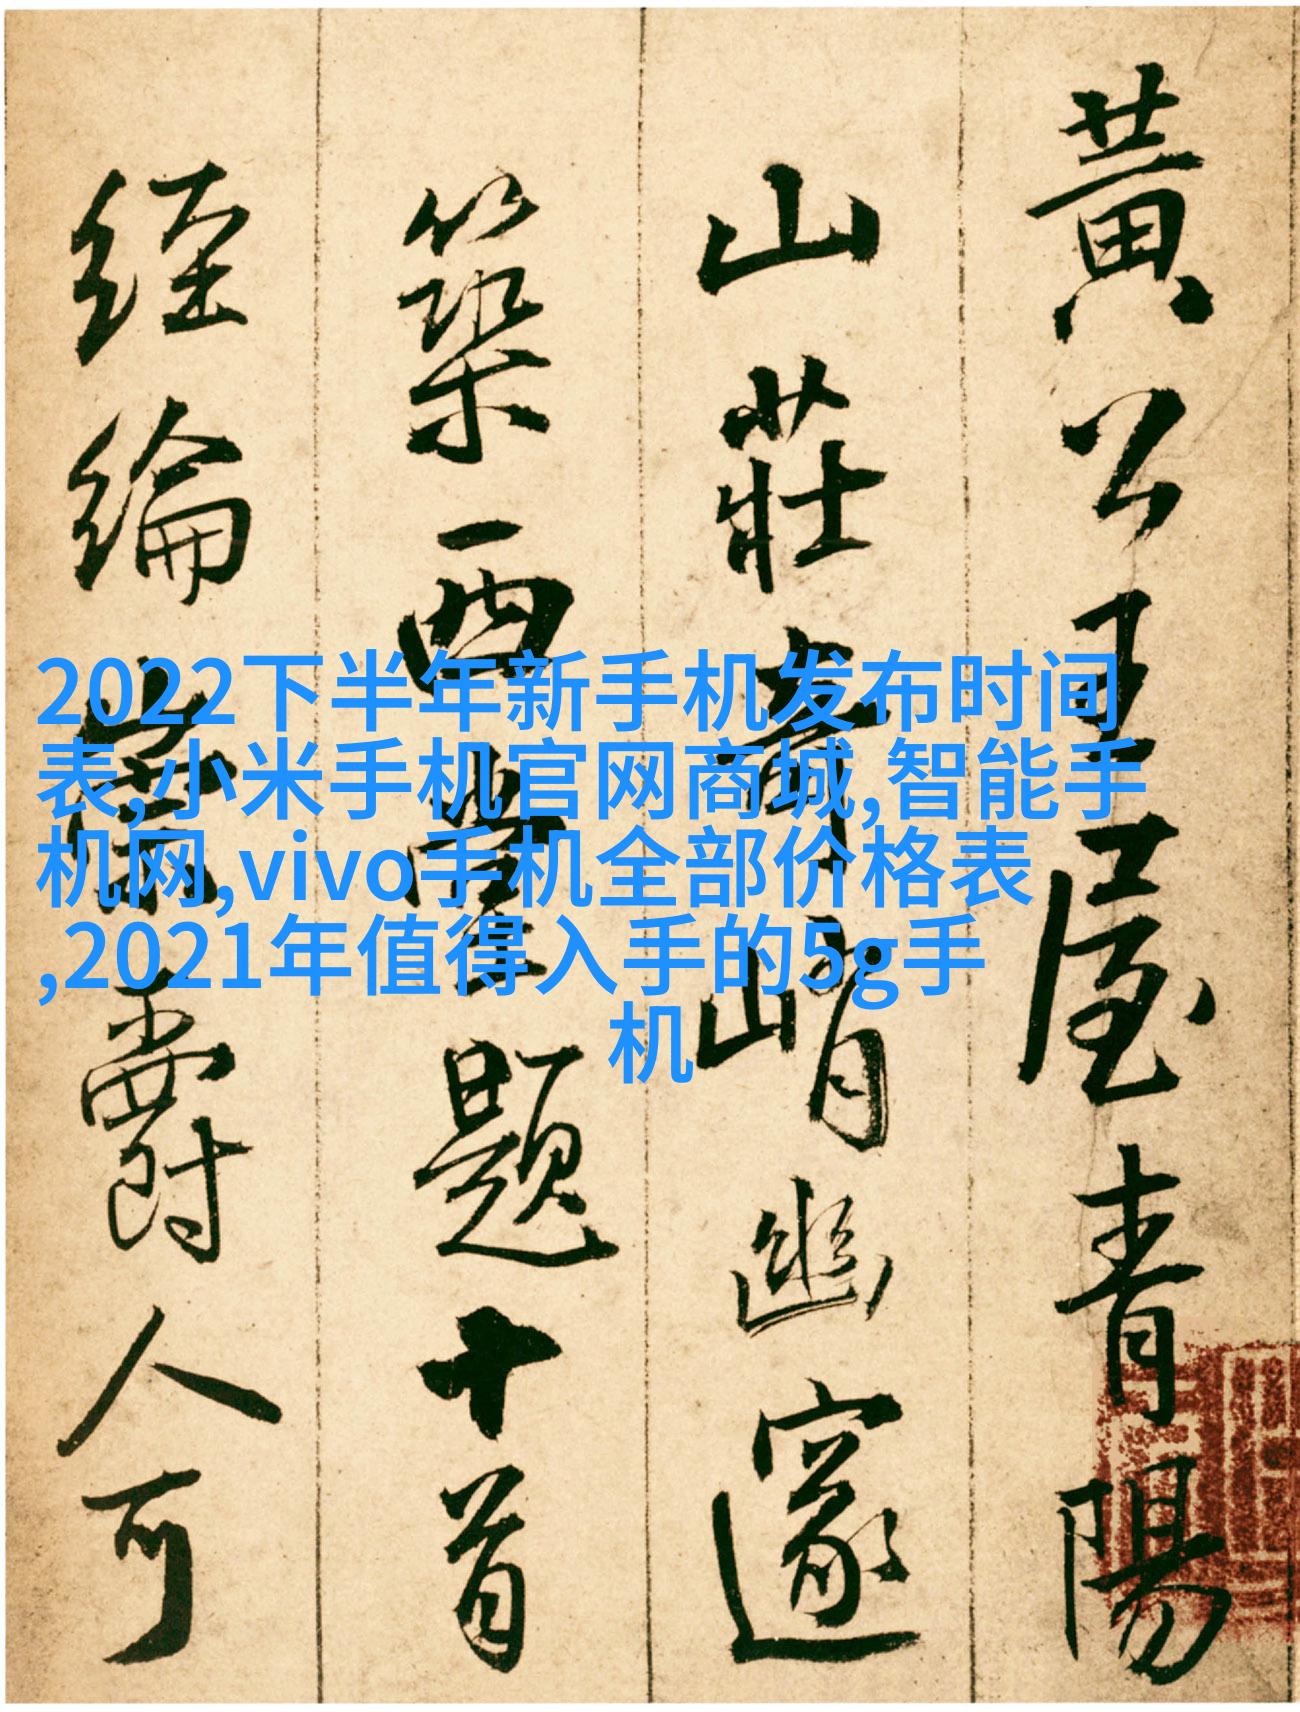 黃公王屋青陽
山莊奇峭幽邃
築西題十首
經綸爵人可
2022下半年新手机发布时间
表,小米手机官网商城,智能手
机网,vivo手机全部价格表
,2021年值得入手的5g手
机